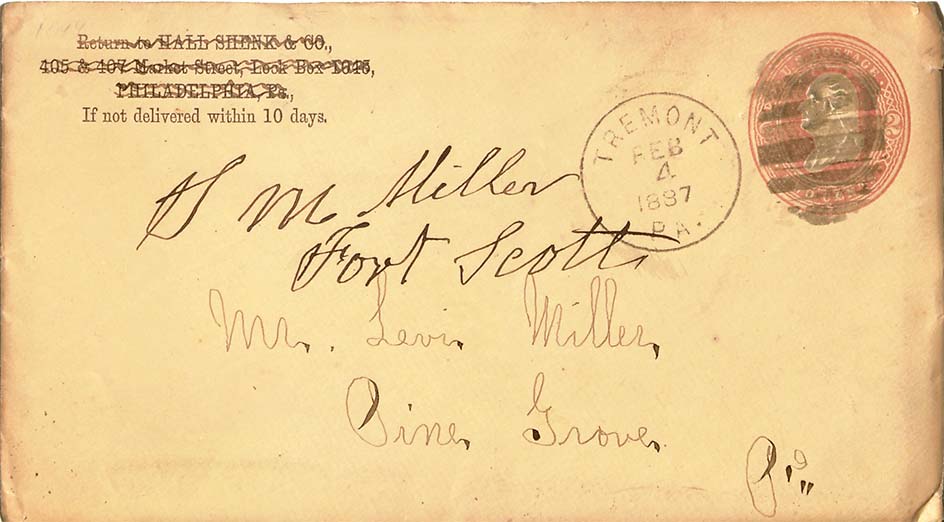 Return to HALL SHENK & CO.,
405 & 407 Market Street, Lock Box 1645,
PHILADELPHIA, Pa.,
If not delivered within 10 days.
TREMONT
FEB
4
1887
PA.
U.S. POSTAGE
2
S M Miller
Fort Scott
Mr. Levi Miller,
Pine Grove
Pa